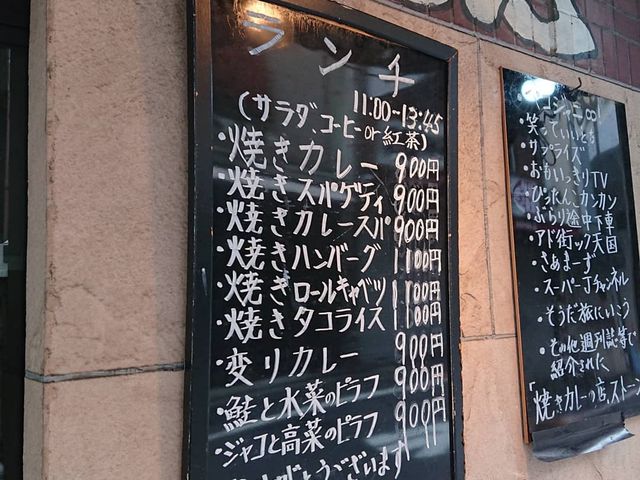 ランチ
11:00~13:45
(サラダ、コーヒーor紅茶)
・焼きカレー 900円
・焼きスパゲティ 900円
・焼きカレースパ 900円
・焼きハンバーグ 1100円
・焼きロールキャベツ 1100円
・焼きタコライス 1100円
・変りカレー 900円
・鮭と水菜のピラフ 900円
・ジャコと高菜のピラフ 900円
うございます
ジャニ8
・笑っていいとも
・サプライズ
・おもいっきりTV
・ぴったんこカンカン
・ぶらり途中下車
・アド街ック天国
・さぁまーず
・スーパーJチャンネル
・そうだ旅にいこう
・その他週刊誌等で
紹介された
「焼きカレーの店、ストー